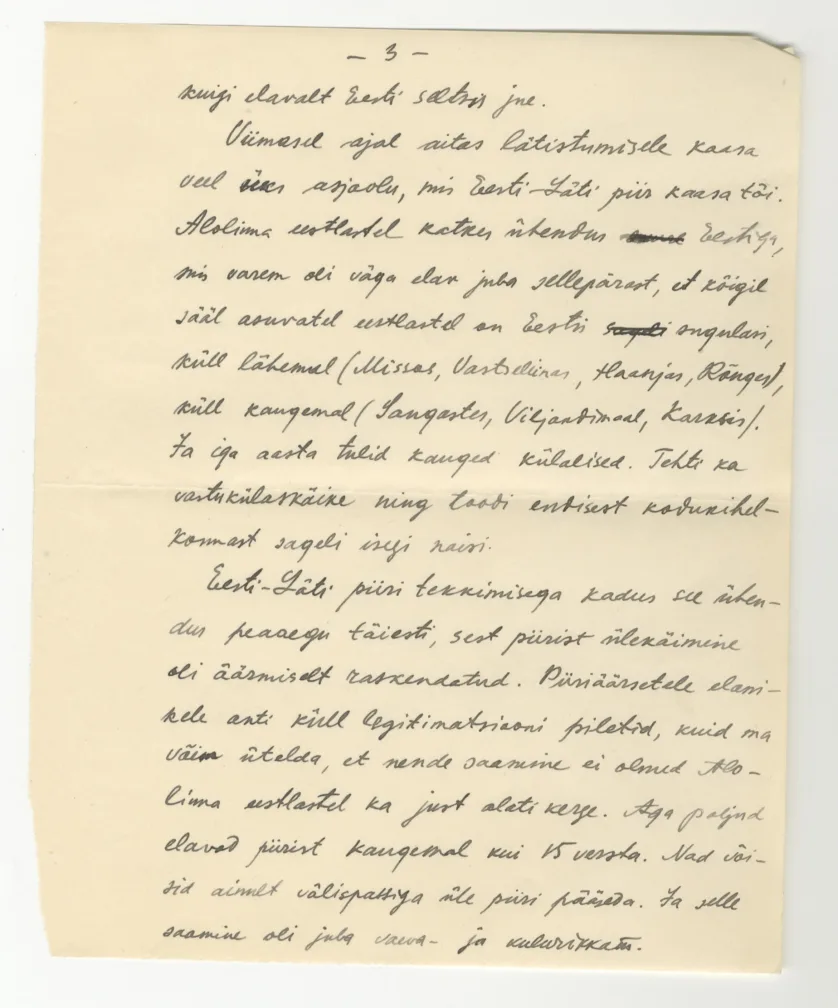 – 3 –
kuigi elavalt Eesti seltsis jne.
Viimasel ajal aitas lätistumisele kaasa
veel üks asjaolu, mis Eesti-Läti piir kaasa tõi.
Alolinna eestlastel katkes ühendus Eestiga,
mis varem oli väga elav juba sellepärast, et kõigil
sääl asuvatel eestlastel on Eestis sugulasi,
küll lähemal (Missos, Vastseliinas, Haanjas, Rõuges),
küll kaugemal (Sangastes, Viljandimaal, Karksis).
Ja iga aasta tulid kauged külalised. Tehti ka
vastukülaskäike ning toodi endisest kodukihel-
konnast sageli isegi naisi.
Eesti-Läti piiri tekkimisega kadus see ühen-
dus peaaegu täiesti, sest piirist ülekäimine
oli äärmiselt raskendatud. Piiriäärsetele elani-
kele anti küll legitimatsiooni piletid, kuid ma
võin ütelda, et nende saamine ei olnud Alo-
linna eestlastel ka just alati kerge. Aga paljud
elavad piirist kaugemal kui 15 versta. Nad või-
sid ainult välispassiga üle piiri pääseda. Ja selle
saamine oli juba vaeva- ja kulurikkam.